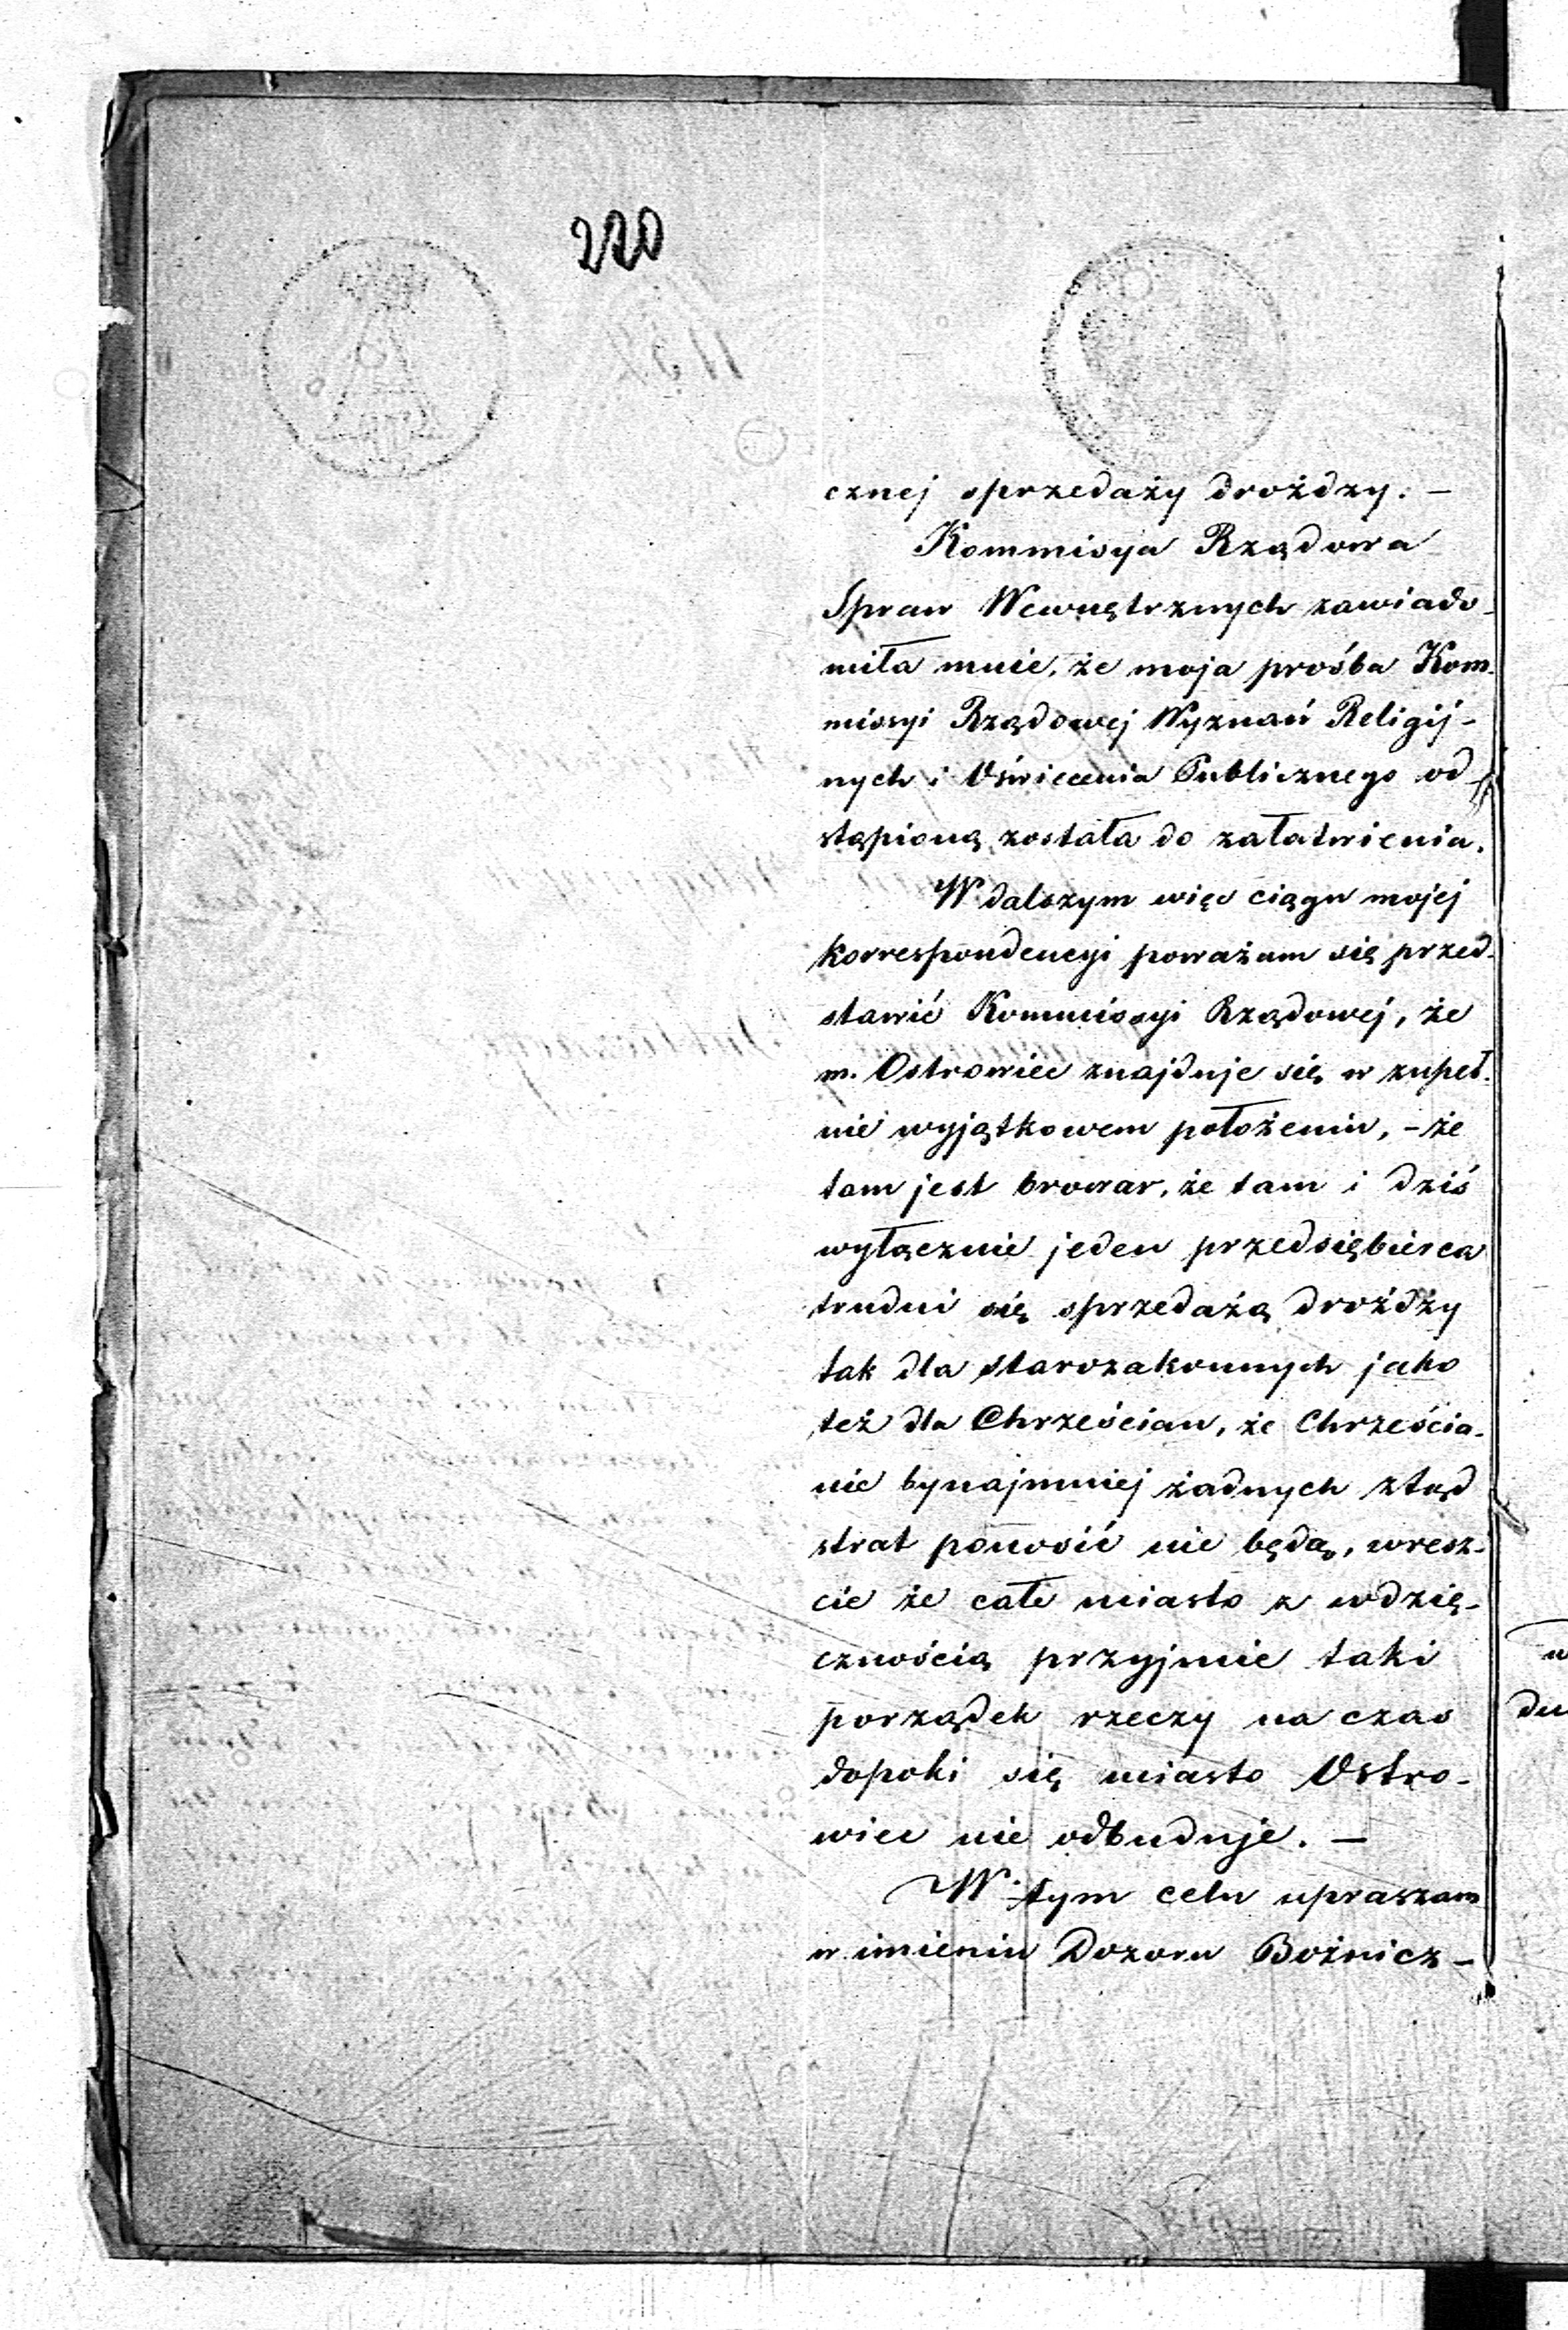 220
cznej sprzedaży drożdży. —
Kommisya Rządowa
Spraw Wewnętrznych zawiado-
miła mnie, że moja prośba Kom-
missyi Rządowej Wyznań Religij-
nych i Oświecenia Publicznego od-
stąpioną została do załatwienia.
W dalszym więc ciągu mojej
korrespondencyi poważam się przed-
stawić Kommissyi Rządowej, że
m. Ostrowiec znajduje się w zupeł-
nie wyjątkowem położeniu, – że
tam jest browar, że tam i dziś
wyłącznie jeden przedsiębierca
trudni się sprzedażą drożdży
tak dla starozakonnych jako
też dla Chrześcian, że Chrześcia-
nie bynajmniej żadnych ztąd
strat ponosić nie będą, wresz-
cie że całe miasto z wdzię-
cznością przyjmie taki
porządek rzeczy na czas
dopoki się miasto Ostro-
wiec nie odbuduje. —
W tym celu upraszam
w imieniu Dozoru Bożnicz-